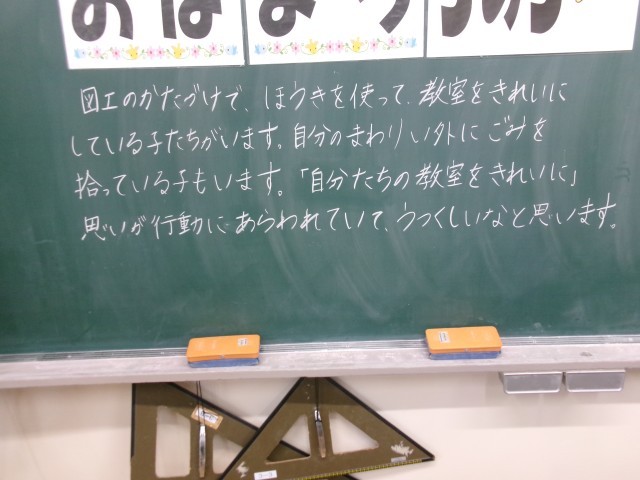 図工のかたづけで、ほうきを使って、教室をきれいに
している子たちがいます。自分のまわりい外にごみを
拾っている子もいます。「自分たちの教室をきれいに」
思いが行動にあらわれていて、うつくしいなと思います。